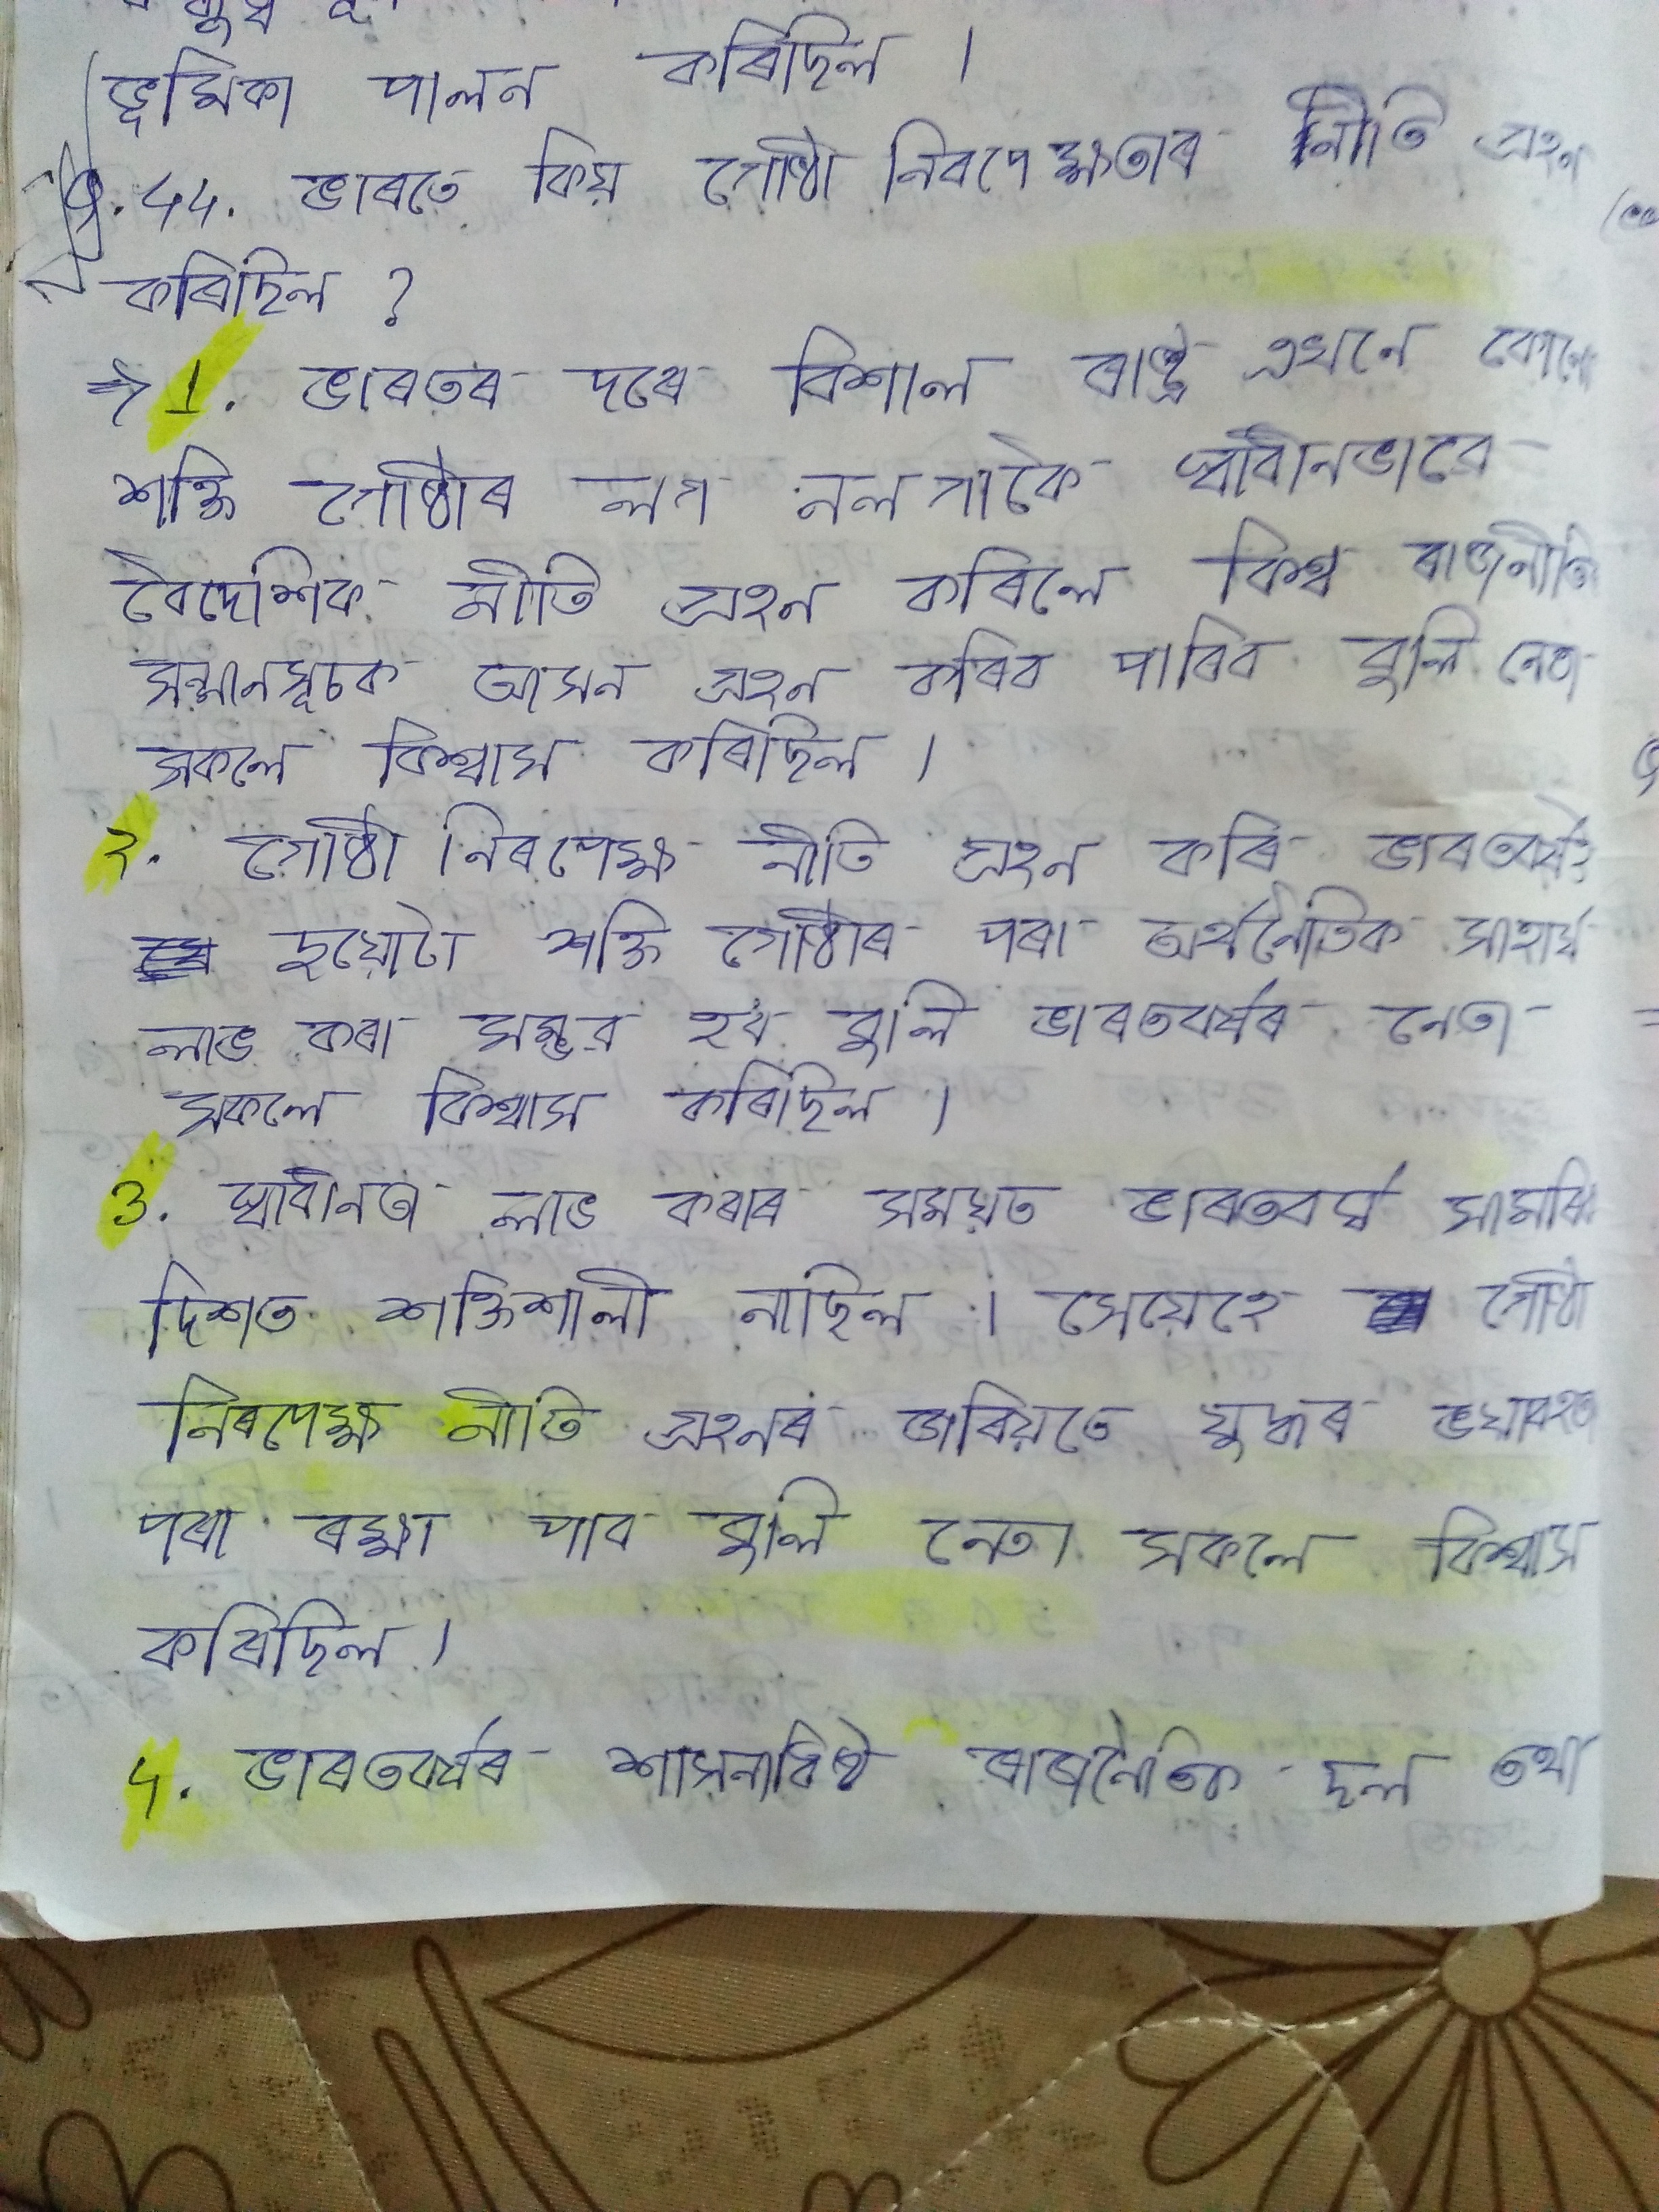 ভূমিকা পালন কৰিছিল ।
Q. 44. ভাৰতে কিয় গোষ্ঠী নিৰপেক্ষতাৰ নীতি গ্ৰহন
কৰিছিল ?
⇒ 1. ভাৰতৰ দৰে বিশাল ৰাষ্ট্ৰ এখনে কোনো
শক্তি গোষ্ঠীৰ লগ নলগাকৈ স্বাধীনভাবে
বৈদেশিক নীতি গ্ৰহন কৰিলে বিশ্ব ৰাজনীতি
সন্মানসূচক আসন গ্ৰহন কৰিব পাৰিব বুলি নেতা
সকলে বিশ্বাস কৰিছিল ।
2. গোষ্ঠী নিৰপেক্ষ নীতি গ্ৰহন কৰি ভাৰতবৰ্ষই
দুয়োটা শক্তি গোষ্ঠীৰ পৰা অৰ্থনৈতিক সাহাৰ্য
লাভ কৰা সম্ভৱ হব বুলি ভাৰতবৰ্ষৰ নেতা
সকলে বিশ্বাস কৰিছিল ।
3. স্বাধীনতা লাভ কৰাৰ সময়ত ভাৰতবৰ্ষ
দিশত শক্তিশালী নাছিল । সেয়েহে গোষ্ঠী
নিৰপেক্ষ নীতি গ্ৰহনৰ জৰিয়তে যুদ্ধৰ
পৰা ৰক্ষা পাব বুলি নেতা সকলে বিশ্বাস
কৰিছিল ।
4. ভাৰতবৰ্ষৰ শাসনাধিষ্ঠ ৰাজনৈতিক দল তথা